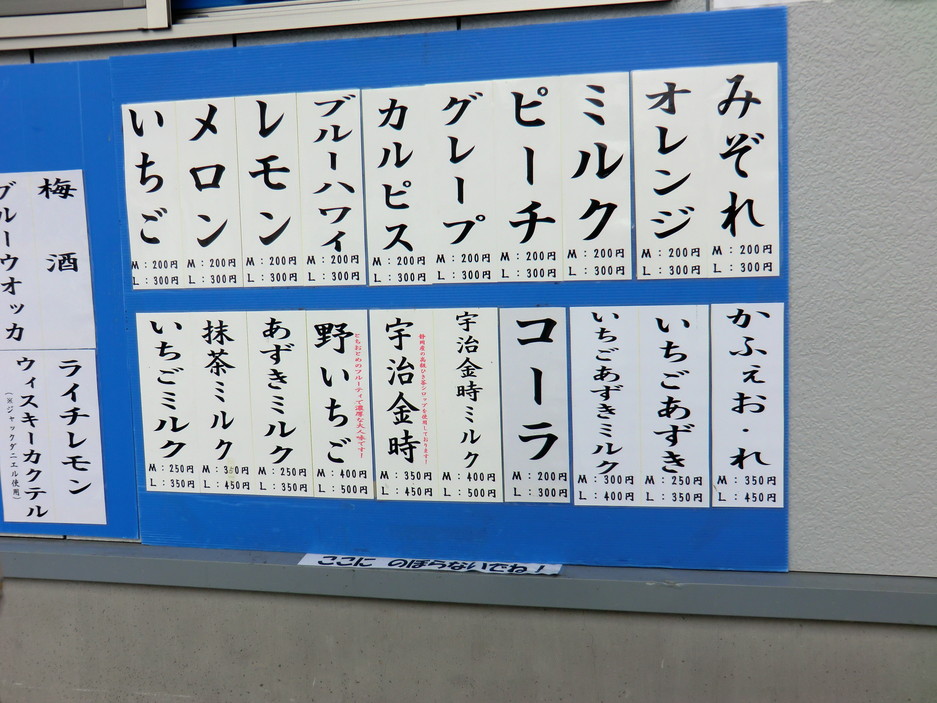 みぞれ
M:200円
L:300円
オレンジ
M:200円
L:300円
ミルク
M:200円
L:300円
ピーチ
M:200円
L:300円
グレープ
M:200円
L:300円
カルピス
M:200円
L:300円
ブルーハワイ
M:200円
L:300円
レモン
M:200円
L:300円
メロン
M:200円
L:300円
いちご
M:200円
L:300円
かふぇお・れ
M:350円
L:450円
いちごあずき
M:250円
L:350円
いちごあずきミルク
M:300円
L:400円
コーラ
M:200円
L:300円
宇治金時ミルク
M:400円
L:500円
宇治金時
静岡産の高級ひき茶シロップを使用しております!
M:350円
L:450円
野いちご
とちおとめのフルーティで濃厚な大人味です!
M:400円
L:500円
あずきミルク
M:250円
L:350円
抹茶ミルク
L:450円
いちごミルク
M:250円
L:350円
梅酒
ブルーウオッカ
ライチレモン
ウィスキーカクテル
(※ジャックダニエル使用)
ここに のぼらないでね!